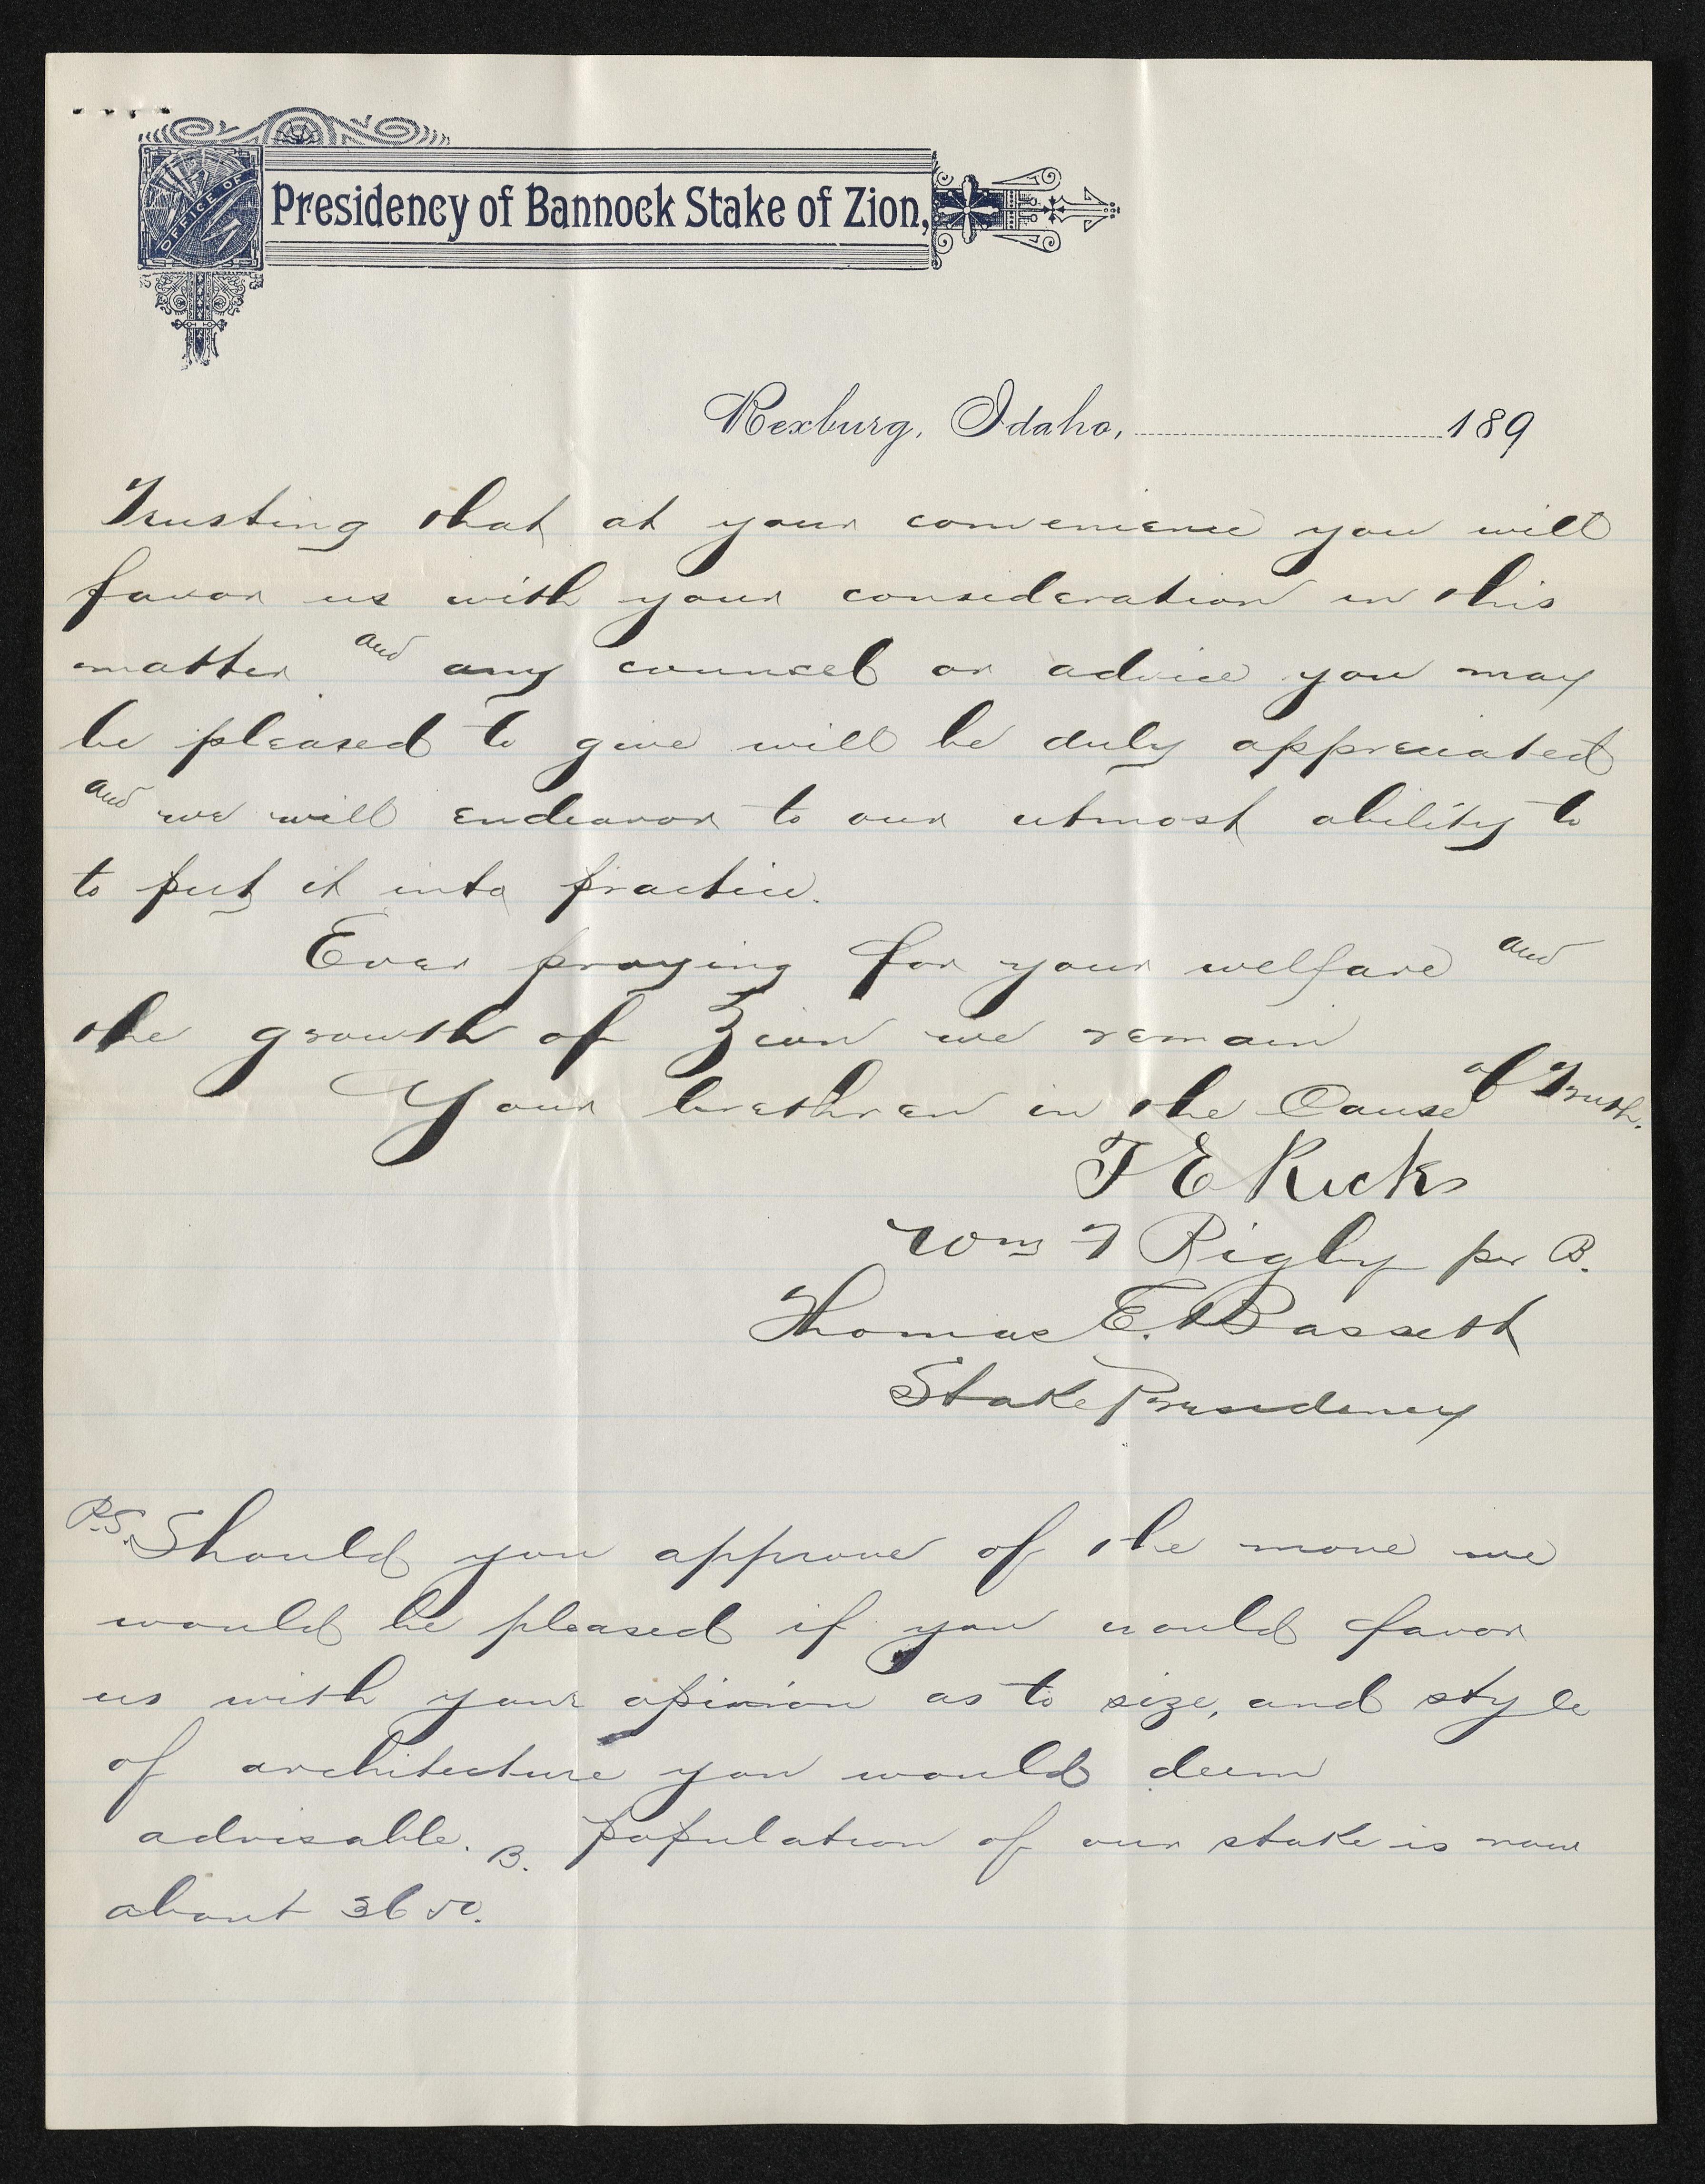 OFFICE OF
Presidency of Bannock Stake of Zion,
Rexburg, Idaho, 189
Trusting that at your convenience you will
favor us with your consideration in this
matter and any councel or advice you may
be pleased to give will be duly appreciated
and we will endeavor to our utmost ability to
to put it into practice.
Ever praying for your welfare and
the growth of Zion we remain
Your brethren in the Cause of Truth.
T E Ricks
Wm F Rigby per B.
Thomas E. Bassett
Stake Presidency
P.S. Should you approve of the move we
would be pleased if you would favor
us with your opinion as to size, and style
of architecture you would deem
advisable. B. population of our stake is now
about 3650.